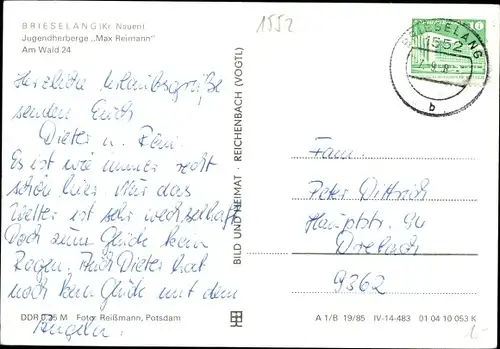 BRIESELANG (Kr. Nauen)
Jugendherberge „Max Reimann"
Am Wald 24
1552
Herzliche Urlaubsgrüße
senden Euch
Dieter u.
Es ist wie immer recht
schön hier. Nur das
Wetter ist sehr wechselhaft
Doch zum Glück kein
Regen. Auch Dieter hat
noch kein Glück mit dem
Angeln.
DDR 0,25 M Foto: Reißmann, Potsdam
BILD UND HEIMAT · REICHENBACH (VOGTL)
BRIESELANG
1552
b
10
Fam.
Peter Dittrich
Hauptstr. 94
Drebach
9362
A 1/B 19/85 IV-14-483 01 04 10 053 K
1,-